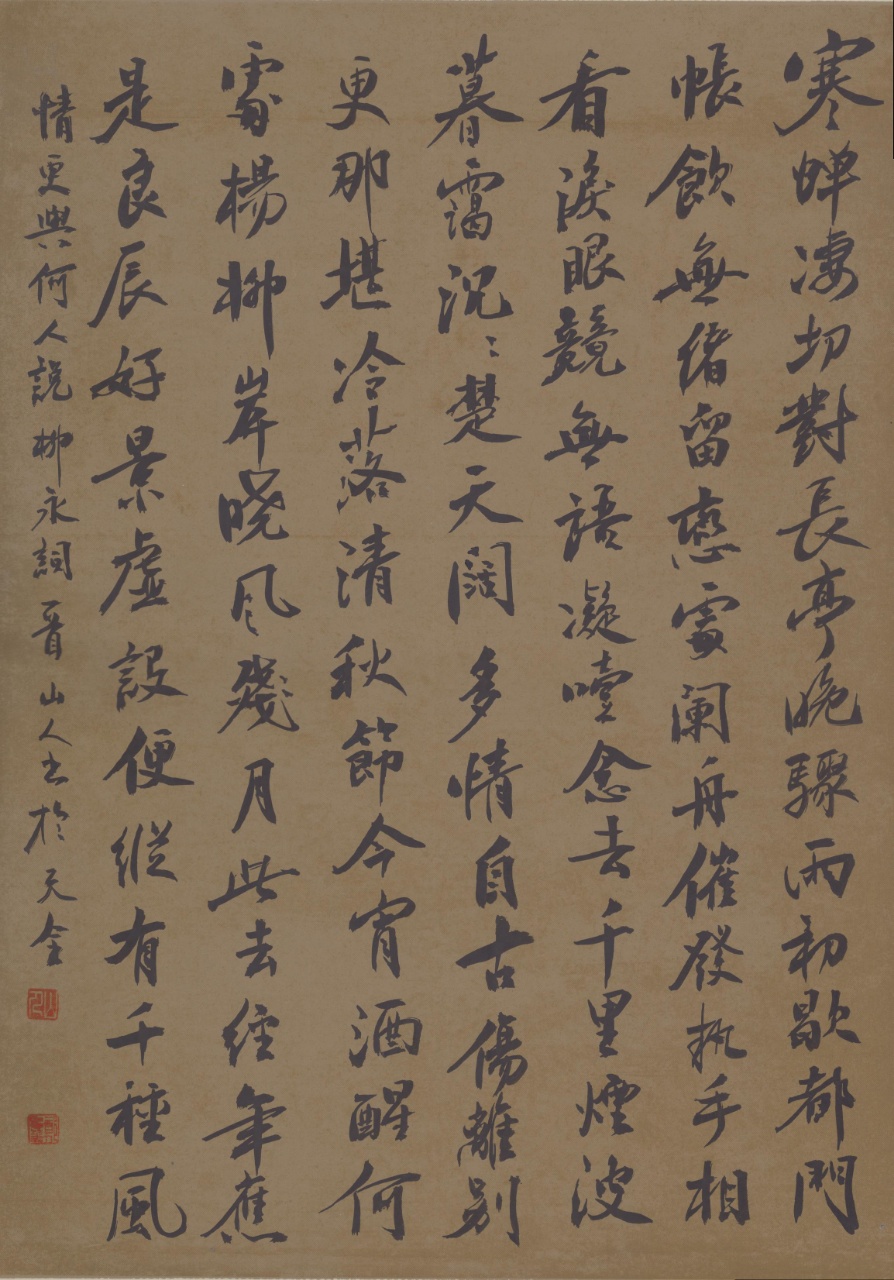 寒蟬淒切對長亭晚驟雨初歇都門
帳飲無緒留戀處闌舟催發執手相
看淚眼競無語凝噎念去千里煙波
暮靄沉〻楚天闊多情自古傷離別
更那堪冷落清秋節今宵酒醒何
處楊柳岸曉風殘月此去經年應
是良辰好景虛設便縱有千種風
情更與何人說 柳永詞 晉山人書於天全